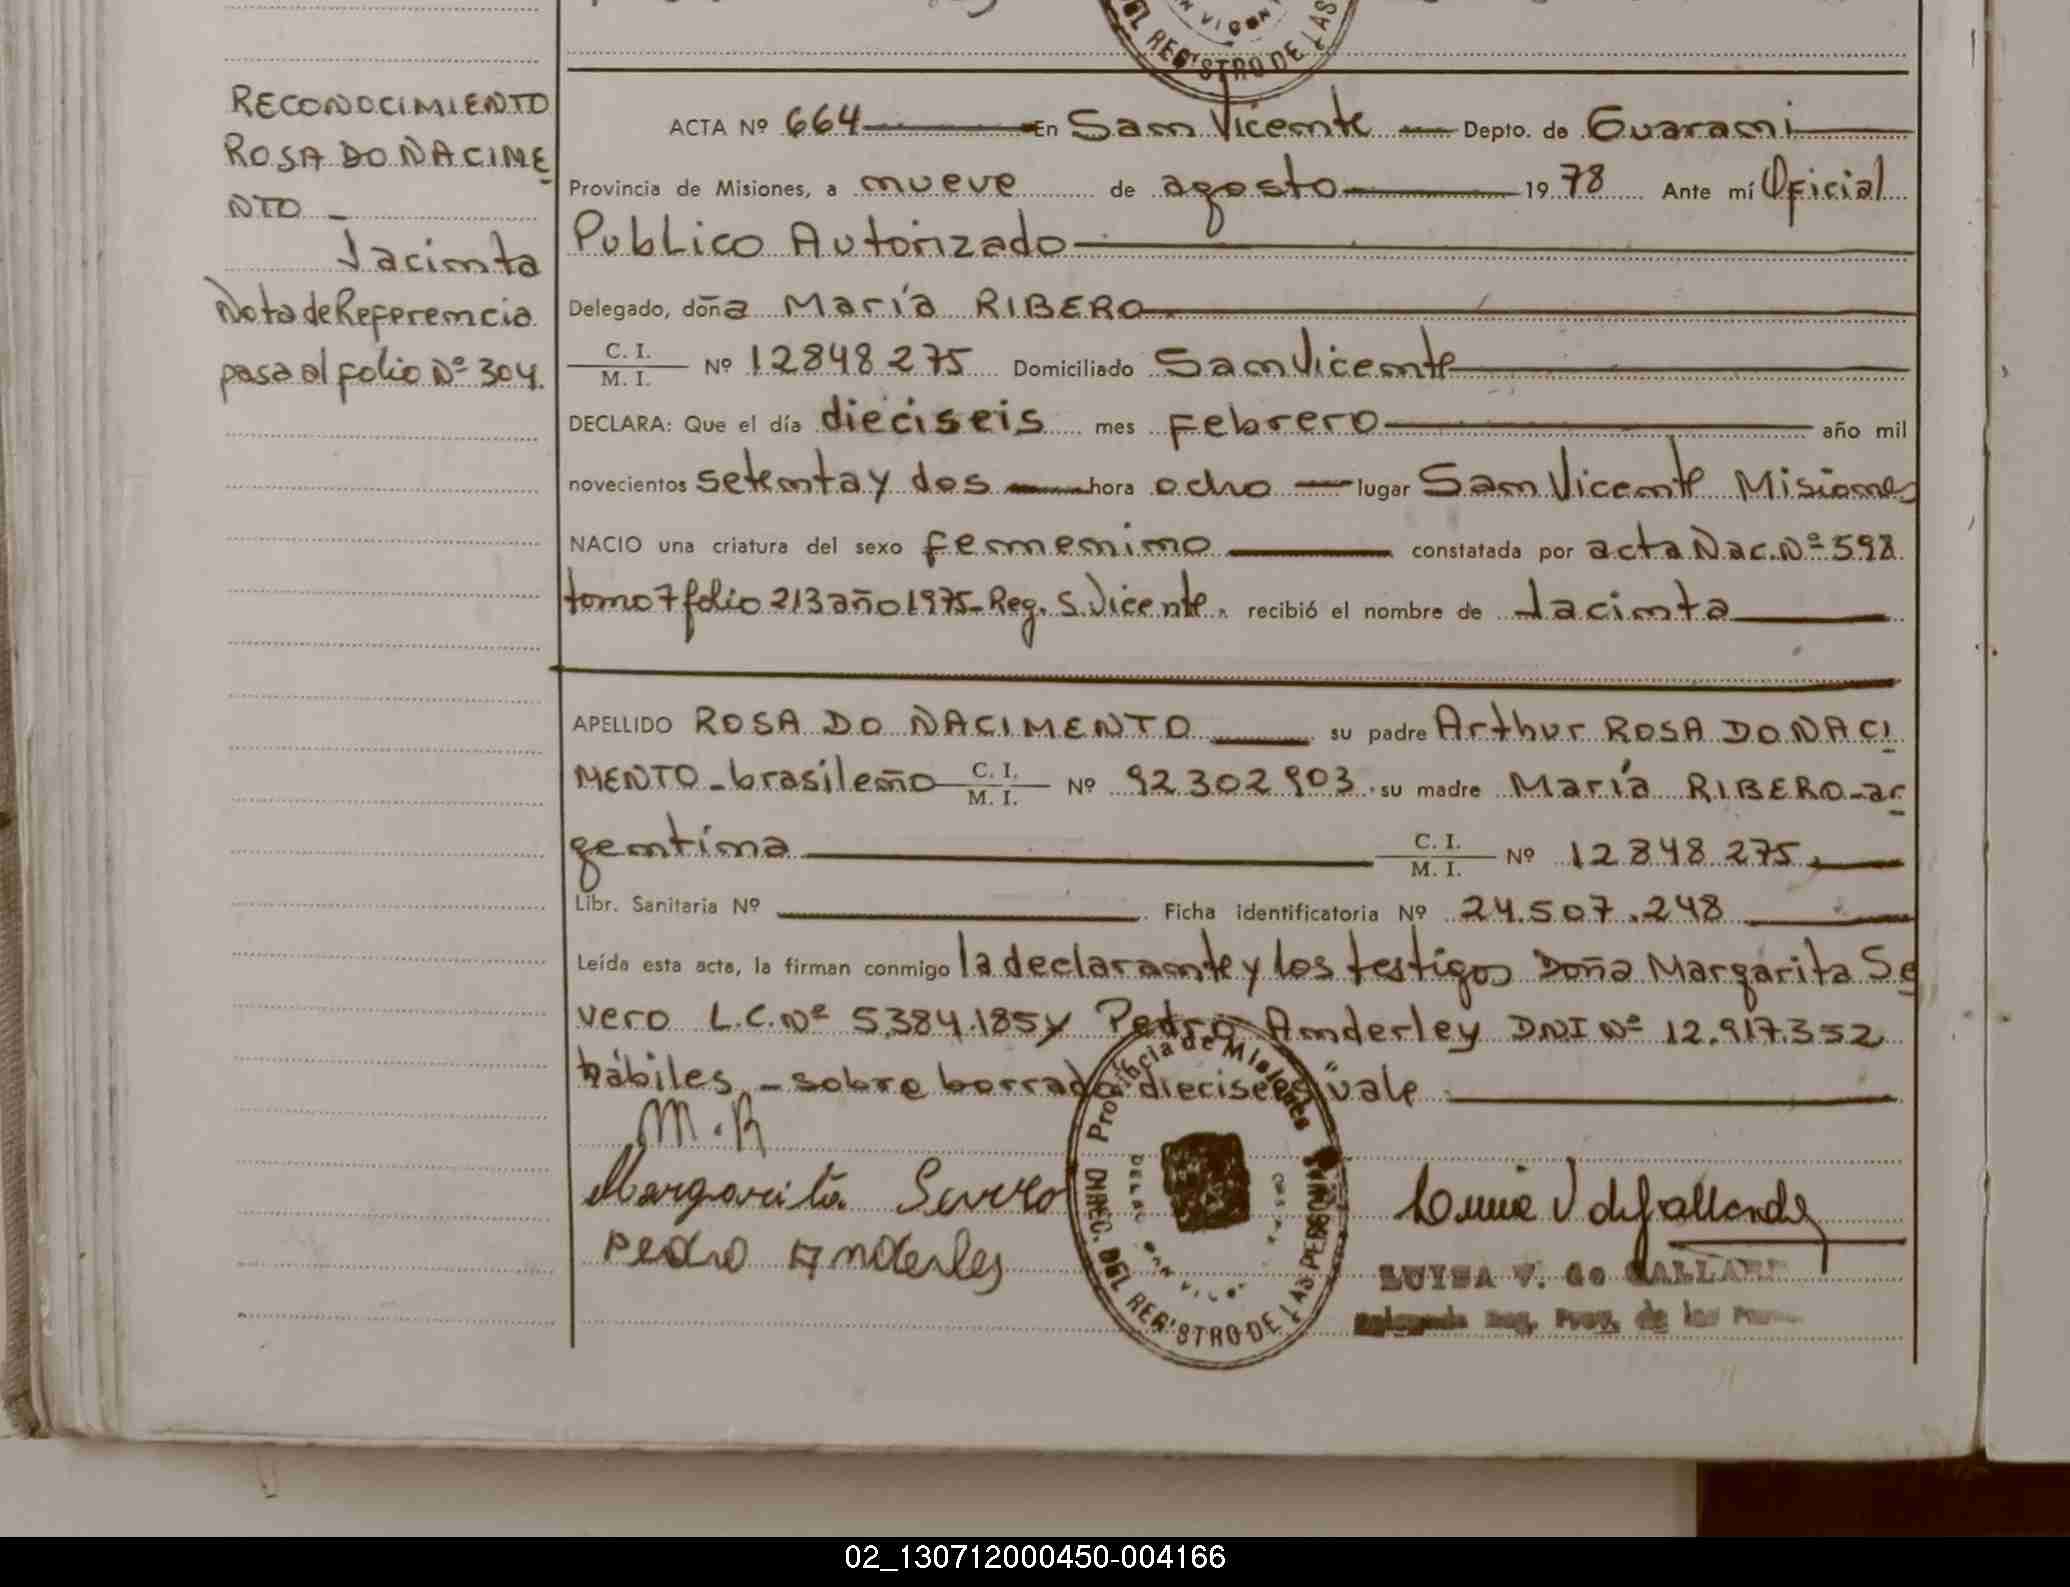 DEL REG'STRO DE LAS
RECONOCIMIENTO
ROSA DO NACIME
NTO _
Jacinta
Nota de Referencia
pasa al folio Nº 304.
ACTA Nº 664 En San Vicente Depto. de Guarani
Provincia de Misiones, a nueve de agosto 1978 Ante mí Oficial
Publico Autorizado
Delegado, doña María RIBERO
C. I.
M. I. Nº 12848275 Domiciliado San Vicente
DECLARA: Que el día dieciseis mes Febrero año mil
novecientos setenta y dos hora ocho lugar San Vicente Misiones
NACIO una criatura del sexo femenino constatada por acta Nac. Nº 598
tomo 7 folio 213 año 1975- Reg. S. Vicente. recibió el nombre de Jacinta
APELLIDO ROSA DO NACIMENTO su padre Arthur ROSA DO NACI
MENTO - brasileño C. I.
M. I. Nº 92.302.903. su madre María RIBERO - ar
gentina C. I.
M. I. Nº 12848275.
Libr. Sanitaria Nº Ficha identificatoria Nº 24.507.248
Leída esta acta, la firman conmigo la declarante y los testigos Doña Margarita Se
vero L.C. Nº 5.384.185 y Pedro Anderley DNI Nº 12.917.352
hábiles - sobre borrado "dieciseis" vale
M. R
Margarita Severo
Pedro Anderley
Provincia de Misiones
DIREC. DEL REG'STRO DE LAS PERSONAS
LUISA V. de GALLARD
Delegada Reg. Prov. de las
02_130712000450-004166